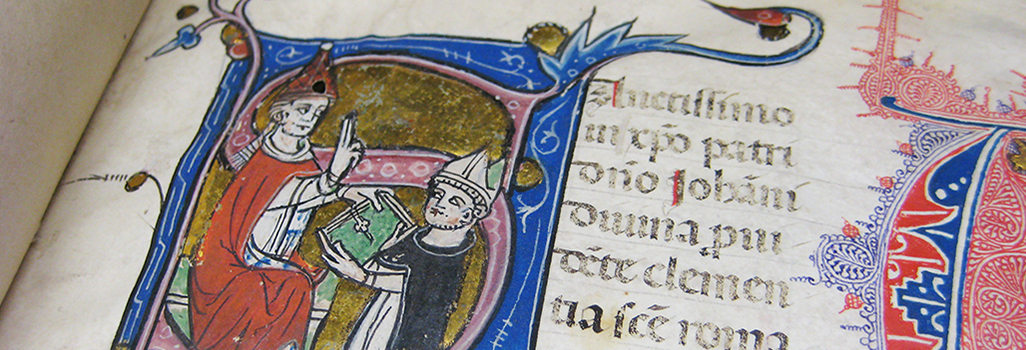 SAnctissimo
in xp̄o patri
dn̄o Iohāni
diuina ꝓui
dēte clemen
tia sc̄e roma